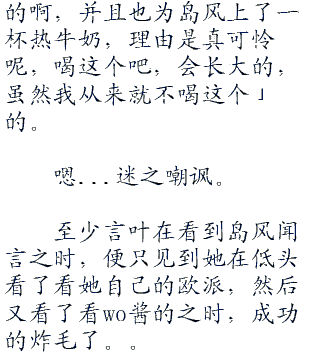 的啊，并且也为岛风上了一
杯热牛奶，理由是真可怜
呢，喝这个吧，会长大的，
虽然我从来就不喝这个」
的。
嗯...迷之嘲讽。
至少言叶在看到岛风闻
言之时，便只见到她在低头
看了看她自己的欧派，然后
又看了看wo酱的之时，成功
的炸毛了。。